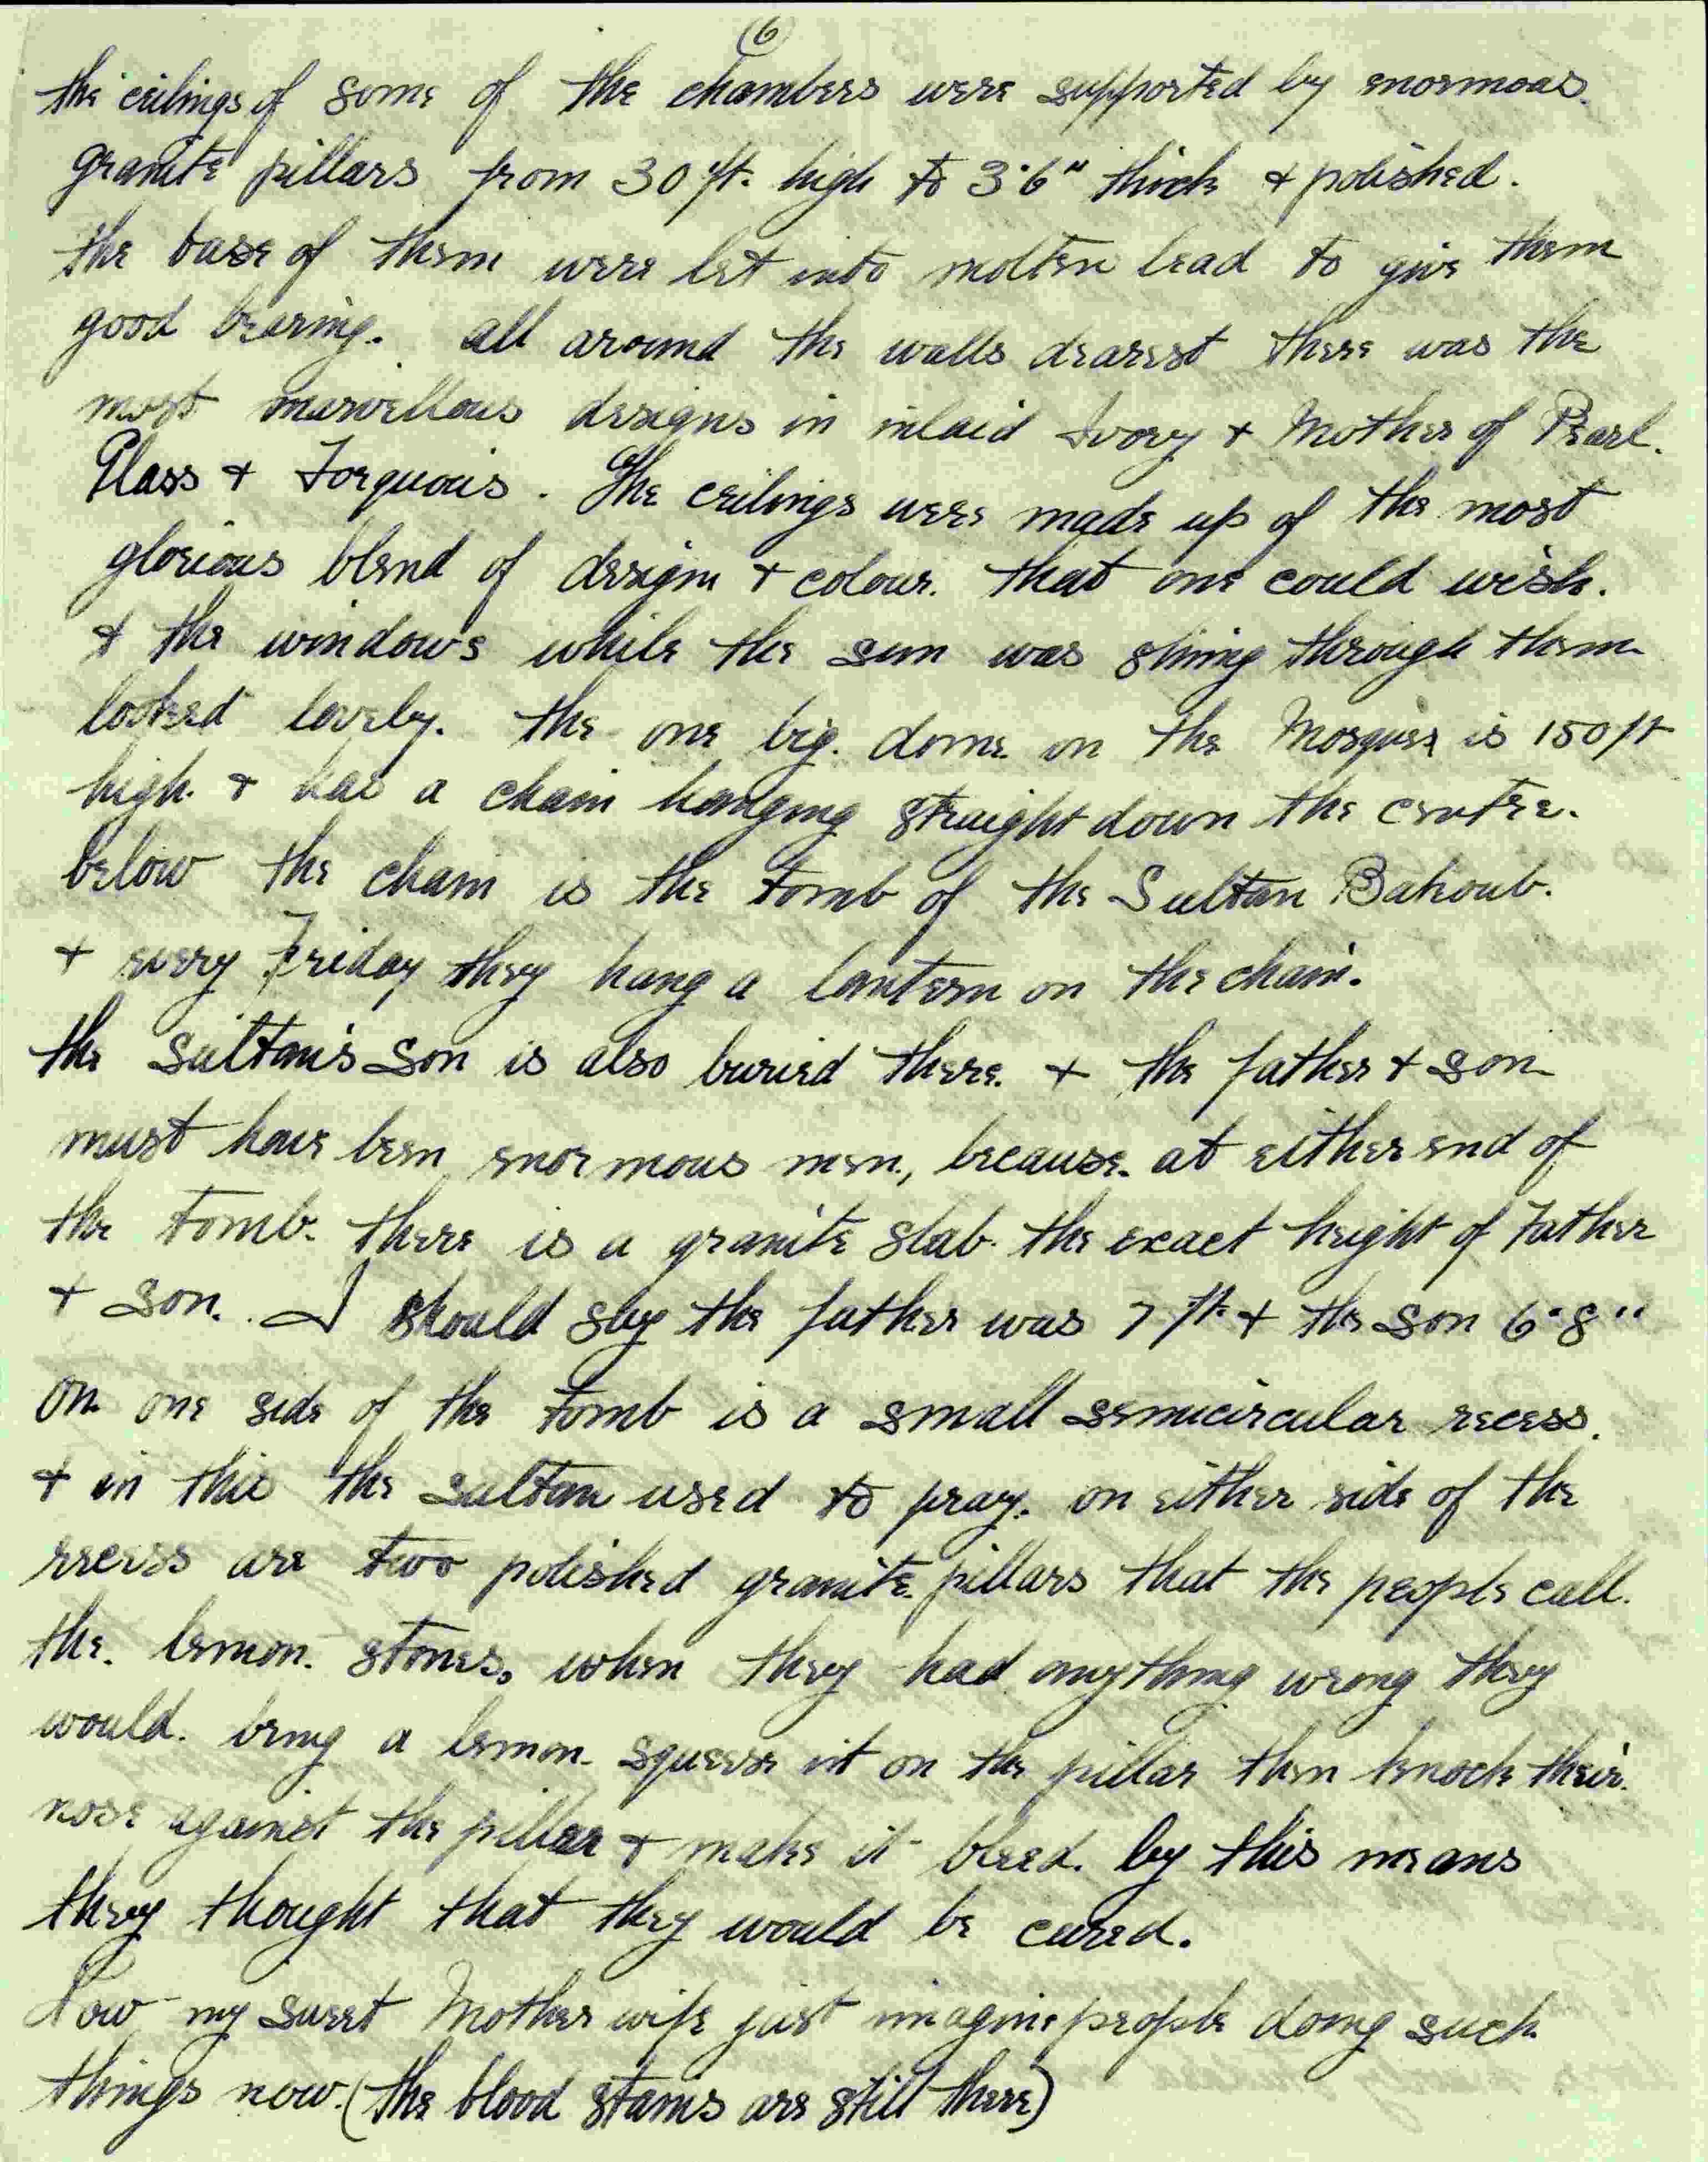 6
the ceilings of some of the chambers were supported by enormoas.
granite pillars from 30 ft. high to 3'6" thick & polished.
the base of them were let into molten lead to give them
good bearing. all around the walls dearest there was the
most marvellous designs in inlaid Ivory & Mother of Pearl.
Glass & Torquois. The ceilings were made up of the most
glorious blend of design & colour. that one could wish.
& the windows while the sun was shing through them
looked lovely. the one big. dome on the Mosques is 150 ft
high. & has a chain hanging straight down the centre.
below the chain is the tomb of the Sultan Bahoub.
& every Friday they hang a lantern on the chain.
the Sultan's son is also buried there. & the father & son
must have been enormous men, because. at either end of
the tomb. there is a granite slab. the exact height of Father
& son. I should say the father was 7 ft. & the son 6'8"
on one side of the tomb is a small semicircular recess.
& in this the sultan used to pray. on either side of the
recess are two polished granite pillars that the people call.
the. lemon. stones. when they had anything wrong they
would. bring a lemon. squeese it on the pillar then knock their.
nose against the pillar & make it bleed. by this means
they thought that they would be cured.
Now my sweet Mother wife just imagine people doing such
things now. (the blood stains are still there)